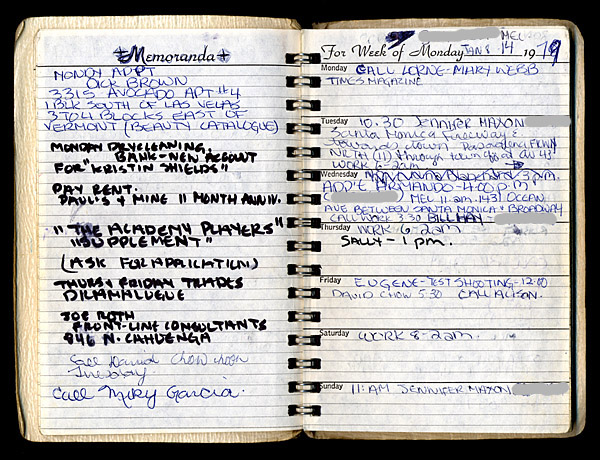 Memoranda
MONDY MVPT
DICK BROWN
3315 AVOCADO APT #4
1 BLK SOUTH OF LAS VEGAS
3 TO 4 BLOCKS EAST OF
VERMONT (BEAUTY CATALOGUE)
MONDAY DRYCLEANING.
BANK-NEW ACCOUNT
FOR "KRISTIN SHIELDS"
PAY RENT.
PAUL'S & MINE 11 MONTH ANNIV.
"THE ACADEMY PLAYERS"
"SUPPLEMENT"
(ASK FOR APPLICATION)
THURS & FRIDAY TRADES
DRAMALOGUE
JOE ROTH
FRONT-LINE CONSULTANTS
946 N. CAHUENGA
See David Chow noon
Tuesday
Call Mary Garcia.
MEL
For Week of Monday JAN 8 14 1979
Monday CALL LORNE-MARY WEBB
TIMES MAGAZINE
Tuesday 10.30 JENNIFER MAXON
Santa Monica Freeway E
towards down Pasadena FRWY
NRTH (11) through turn off at AV 43
WORK 6-2am
Wednesday 3 am.
ADD'E ARMANDO-4:00 pm
MEL 11-am. 1431 OCEAN
AVE BETWEEN SANTA MONICA & BROADWAY
CALL WORK 3 30 BILL MAY
Thursday WORK 6-2am
SALLY - 1 pm.
Friday EUGENE-TEST SHOOTING-12:00
DAVID CHOW 5 30 CALL ALISON.
Saturday WORK 8-2am.
Sunday 11: AM JENNIFER MAXON